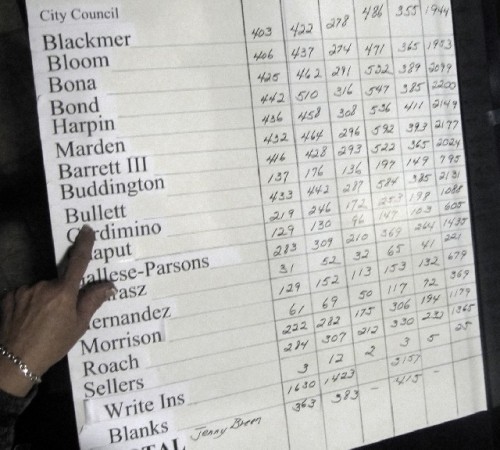 City Council
Blackmer 403 422 278 486 355 1944
Bloom 406 437 274 471 365 1953
Bona 425 462 291 532 389 2099
Bond 442 510 316 547 385 2200
Harpin 436 458 308 536 411 2149
Marden 432 464 296 592 393 2177
Barrett III 416 428 293 522 365 2024
Buddington 137 176 136 197 149 795
Bullett 433 442 287 584 385 2131
219 246 172 253 198 1088
129 130 96 147 103 605
283 309 210 369 264 1435
31 52 32 65 41 221
Hernandez 129 152 113 153 132 679
Morrison 61 69 50 117 72 369
Roach 222 282 175 306 194 1179
Sellers 284 307 212 330 232 1365
Write Ins 3 12 2 3 5 25
Blanks 1630 1423 - 2157 -
TOTAL 363 383 - 415 -